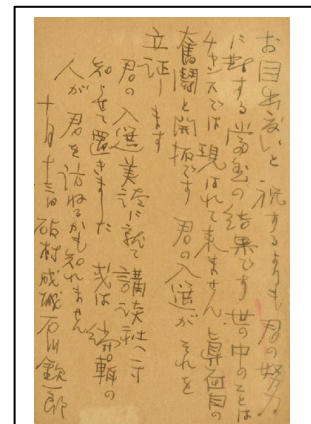 お目出度いと祝するよりも君の努力
に対する当然の結果です 世の中のことは
チャンスでは現はれて来ません、真面目の
奮闘と開拓です 君の入選がそれを
立証します
君の入選美談に就て講談社へ一寸
知らせて置きました 或は編輯の
人が君を訪ねるかも知れません
十月十三日 砧村成城 石川欽一郎